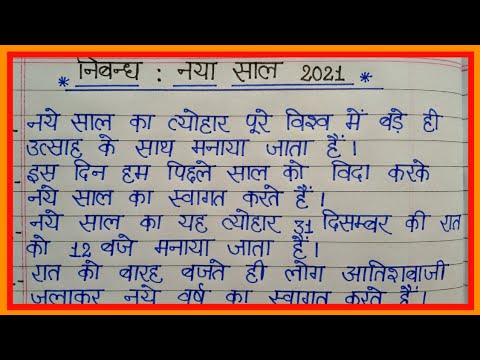 * निबन्ध : नया साल 2021 *
- नये साल का त्योहार पूरे विश्व में बड़े ही
उत्साह के साथ मनाया जाता हैं।
इस दिन हम पिछले साल को विदा करके
नये साल का स्वागत करते हैं।
- नये साल का यह त्योहार 31 दिसम्बर की रात
को 12 बजे मनाया जाता हैं।
रात को बारह बजते ही लोग आतिशबाजी
जलाकर नये वर्ष का स्वागत करते हैं।